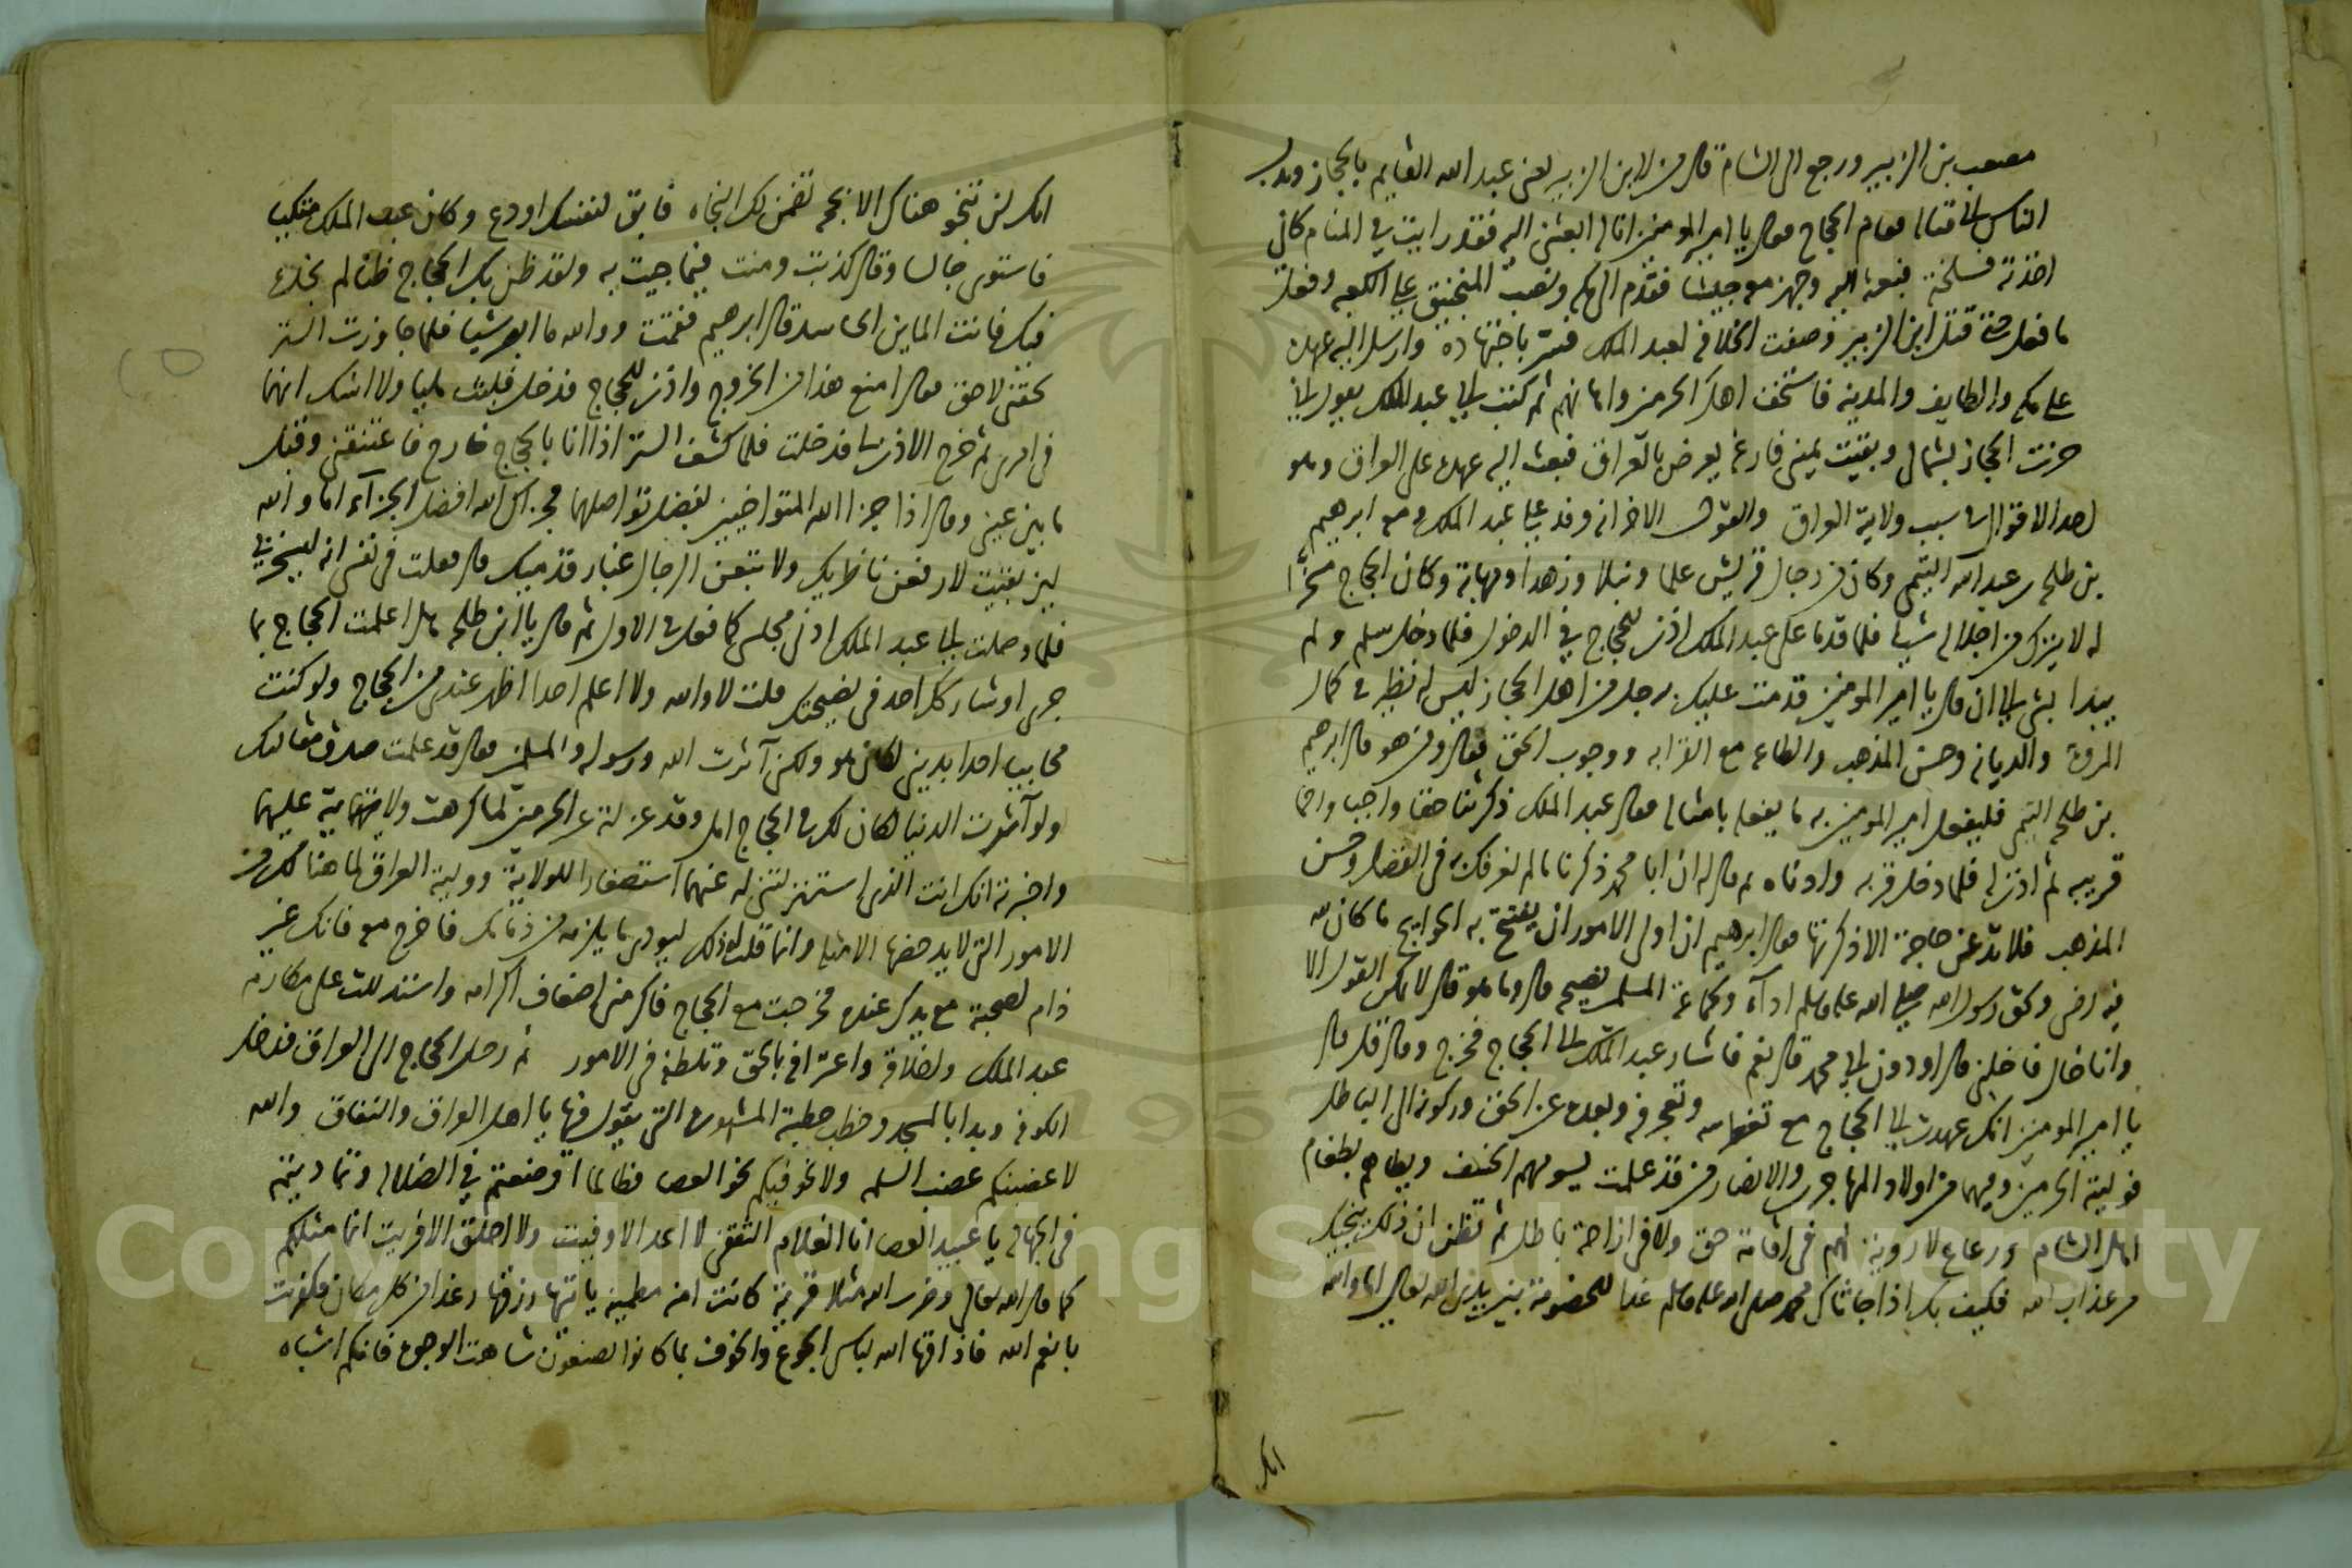 مصعب بن الزبير ورجع الى الشام قال من لابن الزبير يعنى عبد الله القايم بالحجاز وندب
الناس الى قتاله فقام الحجاج فقال يا امير المومنين انا له ابعثنى اليه فقد رايت في المنام كانى
اخذته فسلخته فبعثه اليه وجهز معه جيشا فقدم الى مكه ونصب المنجنيق على الكعبه وفعل
ما فعل حتى قتل ابن الزبير وصفت الخلافه لعبد الملك فسر باجتهاده وارسل اليه عهده
على مكه والطايف والمدينه فاستخف اهل الحرمين واهانهم ثم كتب الى عبد الملك يقول انى
حزت الحجاز بشمالى وبقيت يمينى فارغه يعرض بالعراق فبعث اليه عهده على العراق وهو
احد الاقوال في سبب ولاية العراق والقول الاخر انه وفد على عبد الملك ومعه ابرهيم
بن طلحه بن عبد الله التيمى وكان من رجال قريش علما ونبلا وزهدا ومهابة وكان الحجاج
له لا يترك من اجلاله شيئا فلما قدما على عبد الملك اذن للحجاج في الدخول فلما دخل سلم ولم
يبدا بشي الا ان قال يا امير المومنين قدمت عليك برجل من اهل الحجاز ليس له نظير في كمال
المروة والديانه وحسن المذهب والطاعه مع القرابه ووجوب الحق فقال ومن هو قال ابرهيم
بن طلحه التيمى فليفعل امير المومنين به ما يفعل بامثاله فقال عبد الملك ذكرتنا حقا واجبا ورحما
قريبه ثم اذن له فلما دخل قربه وادناه ثم قال له ان ابا محمد ذكرنا ما لم نزل نعرفك به في الفضل وحسن
المذهب فلا تدعن حاجة الا ذكرتها فقال ابرهيم ان اولى الامور ان يفتتح به الحوايج ما كان لله
فيه رضى وحق رسول الله صلى الله عليه وسلم اداء ولجماعة المسلمين نصيحه قال وما هو قال لا يمكن القول الا
وانا خال فاخلنى قال اودون ابي محمد قال نعم فاشار عبد الملك الى الحجاج فخرج وقال قل قال
يا امير المومنين انك عهدت الى الحجاج مع تغطرسه وتعجرفه وبعده عن الحق وركونه الى الباطل
فوليته الحرمين وبهما من اولاد المهاجرين والانصار من قد علمت يسومهم الخسف ويطاهم بطغام
اهل الشام ورعاع لا روية لهم في اقامة حق ولا في ازاحة باطل ثم تظن ان ذلك ينجيك
من عذاب الله فكيف بك اذا جاثاك محمد صلى الله عليه وسلم غدا للخصومة بين يدى الله تعالى اما والله
انك
انك لن تنجو هناك الا بحجه تضمن لك النجاه فابق لنفسك اودع وكان عبد الملك متكيا
فاستوى جالسا وقال كذبت ومنت فيما جيت به ولقد ظن بك الحجاج ظنا لم يجده
فيك فانت الماين الحاسد قال ابرهيم فقمت ووالله ما ابصر شيا فلما جاوزت الستر
لحقنى لاحق فقال امنع هذا من الخروج واذن للحجاج فدخل فلبث مليا ولا اشك انهما
في امرى ثم خرج الاذن لي فدخلت فلما كشف الستر اذا انا بالحجاج خارج فاعتنقنى وقبل
ما بين عينى وقال اذا جزا الله المتواخيين بفضل تواصلهما فجزاك الله افضل الجزاء اما والله
لين بقيت لارفعن ناظريك ولا تبعن الرجال غبار قدميك قال فقلت في نفسى انه ليسخر بي
فلما وصلت الى عبد الملك ادنى مجلسى كما فعل في الاول ثم قال يا ابن طلحه هل اعلمت الحجاج بما
جرى او شاركك احد في نصيحتك قلت لا والله ولا اعلم احدا اظهر عندى من الحجاج ولو كنت
محابيا احدا بدينى لكان هو ولكن آثرت الله ورسوله والمسلمين فقال قد علمت صدق مقالتك
ولو آثرت الدنيا لكان لك في الحجاج امل وقد عزلته عن الحرمين لما كرهت ولايته عليهما
واخبرته انك انت الذى استنزلتنى له عنهما استصغارا للولاية ووليته العراق لما هنالك من
الامور التى لا يدحضها الا مثله وانما قلت له ذلك ليودى ما يلزمه من ذمامك فاخرج معه فانك غير
ذام لصحبته مع يدك عنده فخرجت مع الحجاج فاكرمنى اضعاف اكرامه واستدللت على مكارم
عبد الملك واخلاقه واعترافه بالحق وتلطفه في الامور ثم رحل الحجاج الى العراق فدخل
الكوفه وبدا بالمسجد وخطب خطبته المشهوره التى يقول فيها يا اهل العراق والنفاق والله
لاعصبنكم عصب السلمه ولالحونكم لحو العصا فطالما اوضعتم في الضلاله وتماديتم
في الجهاله يا عبيد العصا انا الغلام الثقفى لا اعد الا وفيت ولا اخلق الا فريت انما مثلكم
كما قال الله تعالى وضرب الله مثلا قرية كانت امنه مطمينه ياتيها رزقها رغدا من كل مكان فكفرت
بانعم الله فاذاقها الله لباس الجوع والخوف بما كانوا يصنعون شاهت الوجوه فانكم اشباه
Copyright © King Saud University
1957